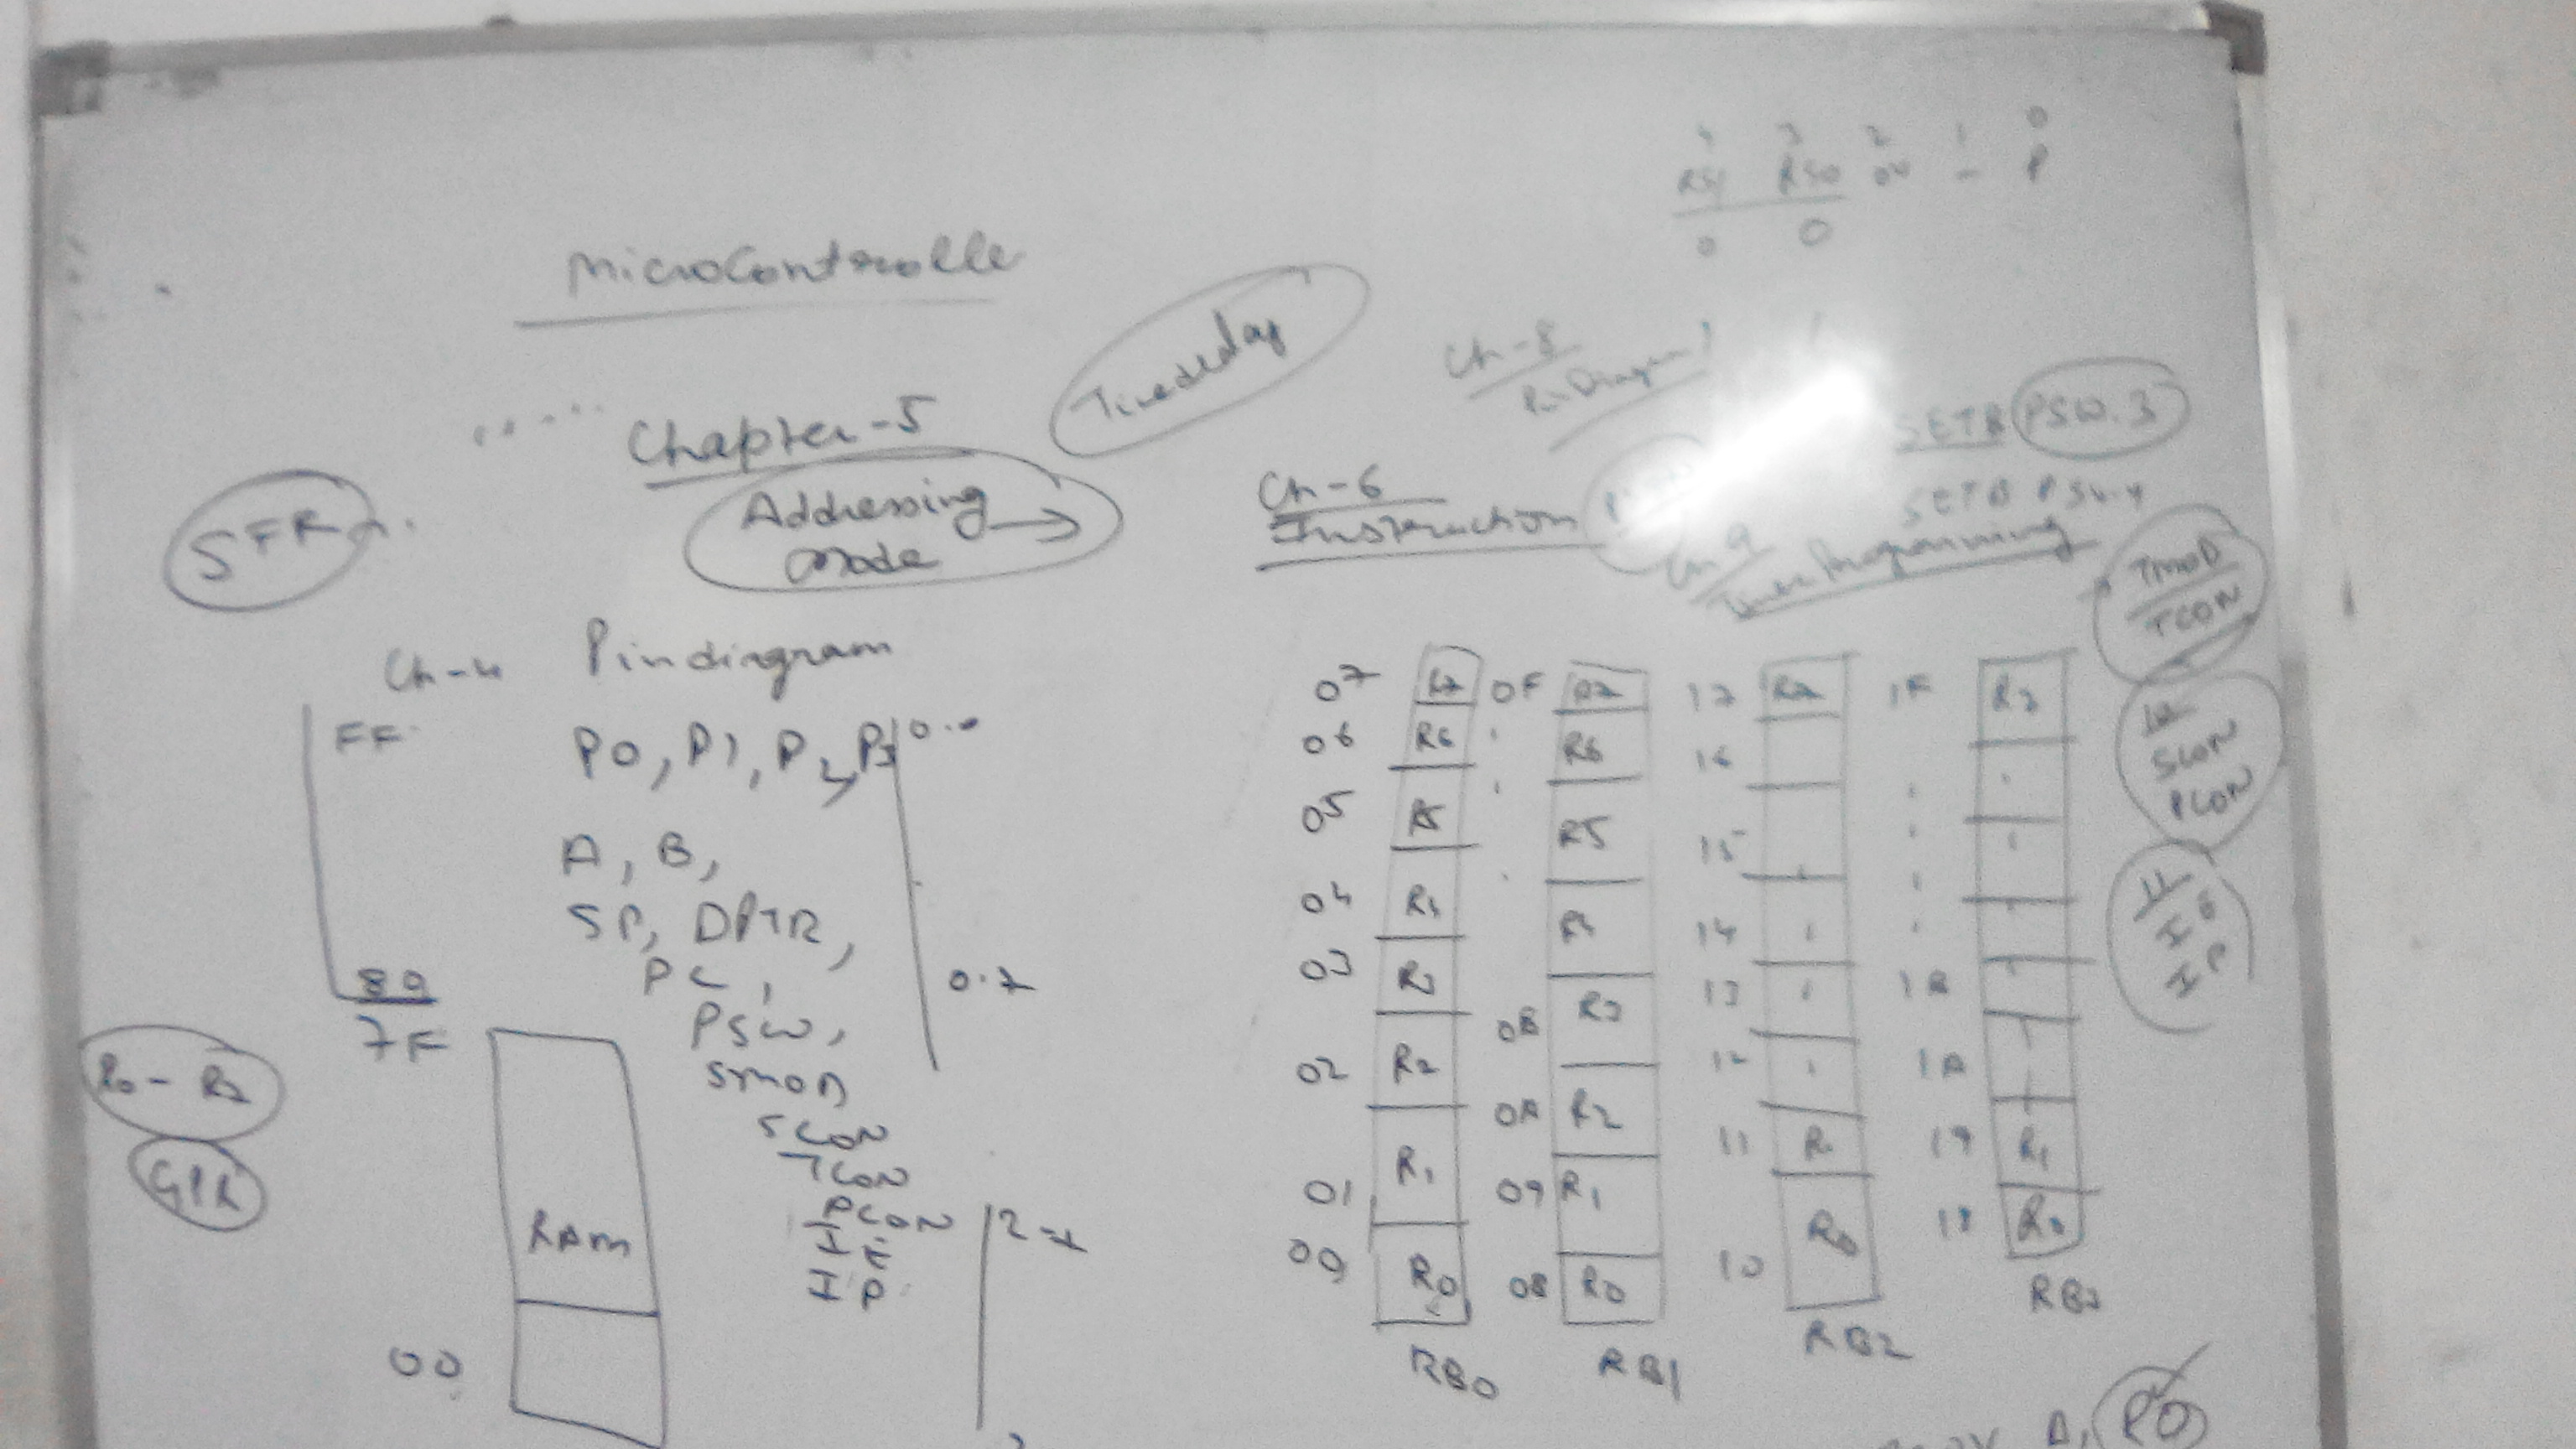 4 3 2 1 0
RS1 RS0 OV - P
0 0
Microcontrolle
Timedelay
Chapter-5
Addressing
mode
SFR
Ch-8
Pin Diagram
SETB PSW.3
SETB PSW.4
Ch-6
Instruction
Ch-9
Programming
TMOD
TCON
SCON
PCON
IE
IP
Ch-4 Pindiagram
FF
80
7F
P0, P1, P2, P3
0.0
A, B,
SP, DPTR,
PC,
0.7
PSW,
SMOD
SCON
TCON
PCON
IE
IP
R0 - R7
GPR
RAM
00
07 R7 0F R7 17 R7 1F R7
06 R6 R6 16
05 R5 R5 15
04 R4 R4 14
03 R3 0B R3 13 1B
02 R2 0A R2 12 1A
01 R1 09 R1 11 R1 19 R1
00 R0 08 R0 10 R0 18 R0
RB0 RB1 RB2 RB3
MOV A, R0